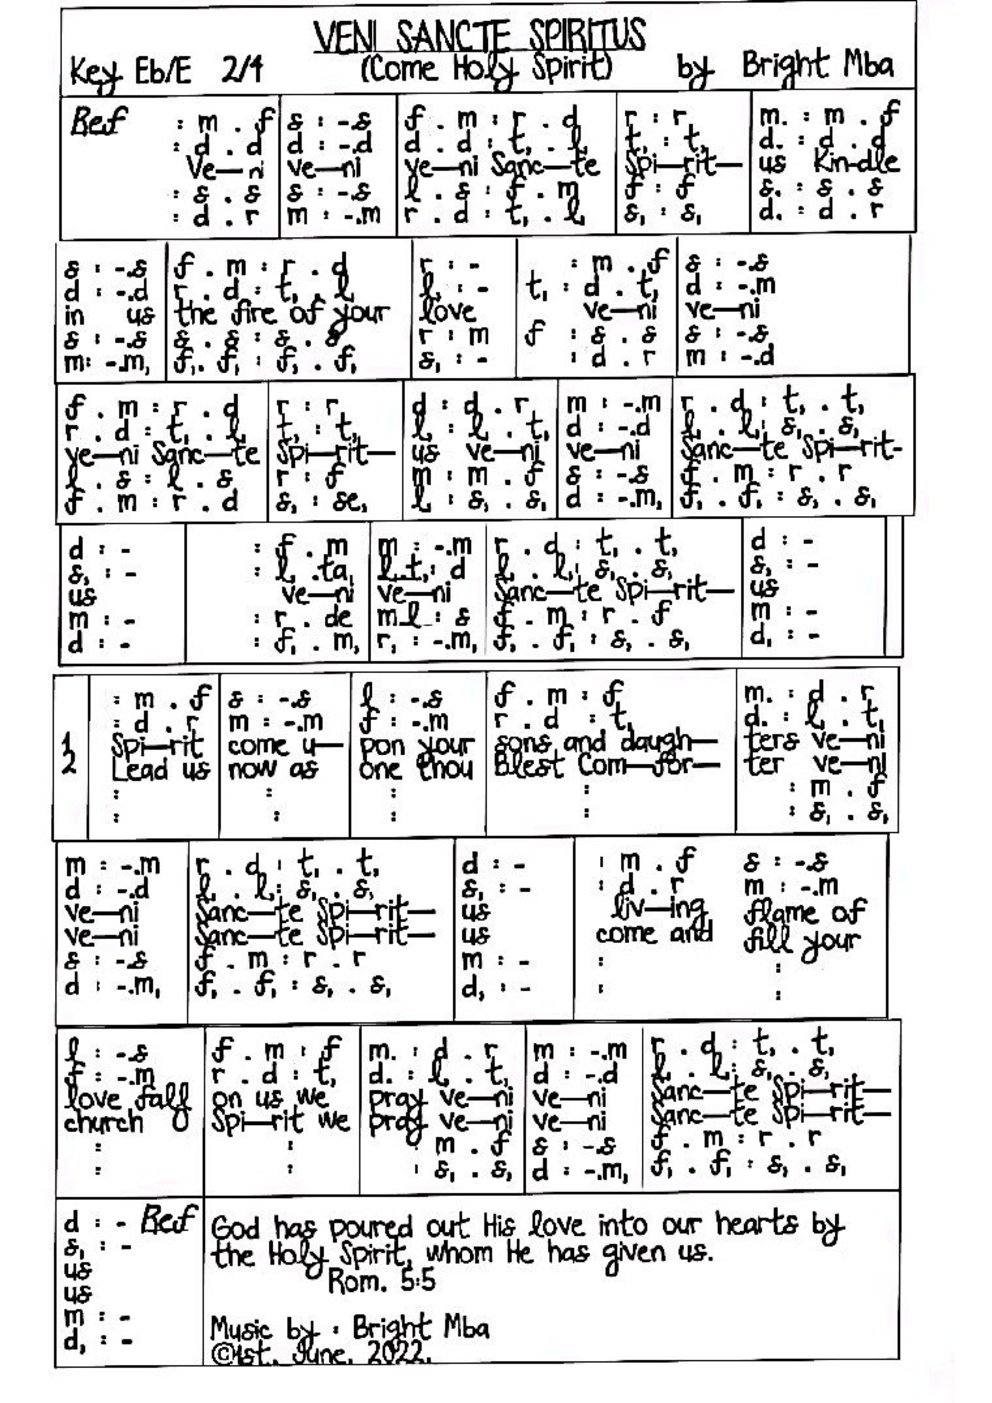 VENI SANCTE SPIRITUS
Key Eb/E 2/4 (Come Holy Spirit) by Bright Mba
Ref : m . f s : -.s f . m : r . d r : r, m. : m . f
: d . d d : -.d d . d : t, . l t, : t, d. : d . d
Ve—ni ve—ni ve—ni Sanc—te Spi—rit— us Kin-dle
: s . s s : -.s l . s : f . m f : f s. : s . s
: d . r m : -.m r . d : t, . l, s, : s, d. : d . r
s : -.s f . m : r . d r : - : m . f s : -.s
d : -.d r . d : t, . l l, : - t, : d . t, d : -.m
in us the fire of your love ve—ni ve—ni
s : -.s s . s : s . s r : m f : s . s s : -.s
m: -.m, f, . f, : f, . f, s, : - : d . r m : -.d
f . m : r . d r : r, d : d . r, m : -.m r . d : t, . t,
r . d : t, . l t, : t, l : l . t, d : -.d l . l, : s, . s,
ve—ni Sanc—te Spi—rit— us ve—ni ve—ni Sanc—te Spi—rit-
l . s : l . s r : f m : m . f s : -.s f . m : r . r
f . m : r . d s, : se, l : s, . s, d : -.m, f, . f, : s, . s,
d : - : f . m m : -.m r . d : t, . t, d : -
s, : - : l, .ta, l,.t, : d l . l, : s, . s, s, : -
us ve—ni ve—ni Sanc—te Spi—rit— us
m : - : r . de m.l : s f . m : r . f m : -
d : - : f, . m, r, : -.m, f, . f, : s, . s, d, : -
: m . f s : -.s l : -.s f . m : f m. : d . r
: d . r m : -.m f : -.m r . d : t, d. : l, . t,
1 Spi—rit come u— pon your sons and daugh— ters ve—ni
2 Lead us now as one thou Blest Com—for— ter ve—ni
: : : : : m . f
: : : : : s, . s,
m : -.m r . d : t, . t, d : - : m . f s : -.s
d : -.d l, . l, : s, . s, s, : - : d . r m : -.m
ve—ni Sanc—te Spi—rit— us liv—ing flame of
ve—ni Sanc—te Spi—rit— us come and fill your
s : -.s f . m : r . r m : - : :
d : -.m, f, . f, : s, . s, d, : - : :
l : -.s f . m : f m. : d . r m : -.m r . d : t, . t,
f : -.m r . d : t, d. : l, . t, d : -.d l . l, : s, . s,
love fall on us we pray ve—ni ve—ni Sanc—te Spi—rit—
church Spi—rit we pray ve—ni ve—ni Sanc—te Spi—rit—
: : m . f s : -.s f . m : r . r
: : : s, . s, d : -.m, f, . f, : s, . s,
d : - Ref
s, : -
us
us
m : -
d, : -
God has poured out His love into our hearts by
the Holy Spirit, whom He has given us.
Rom. 5:5
Music by : Bright Mba
©1st. June. 2022.